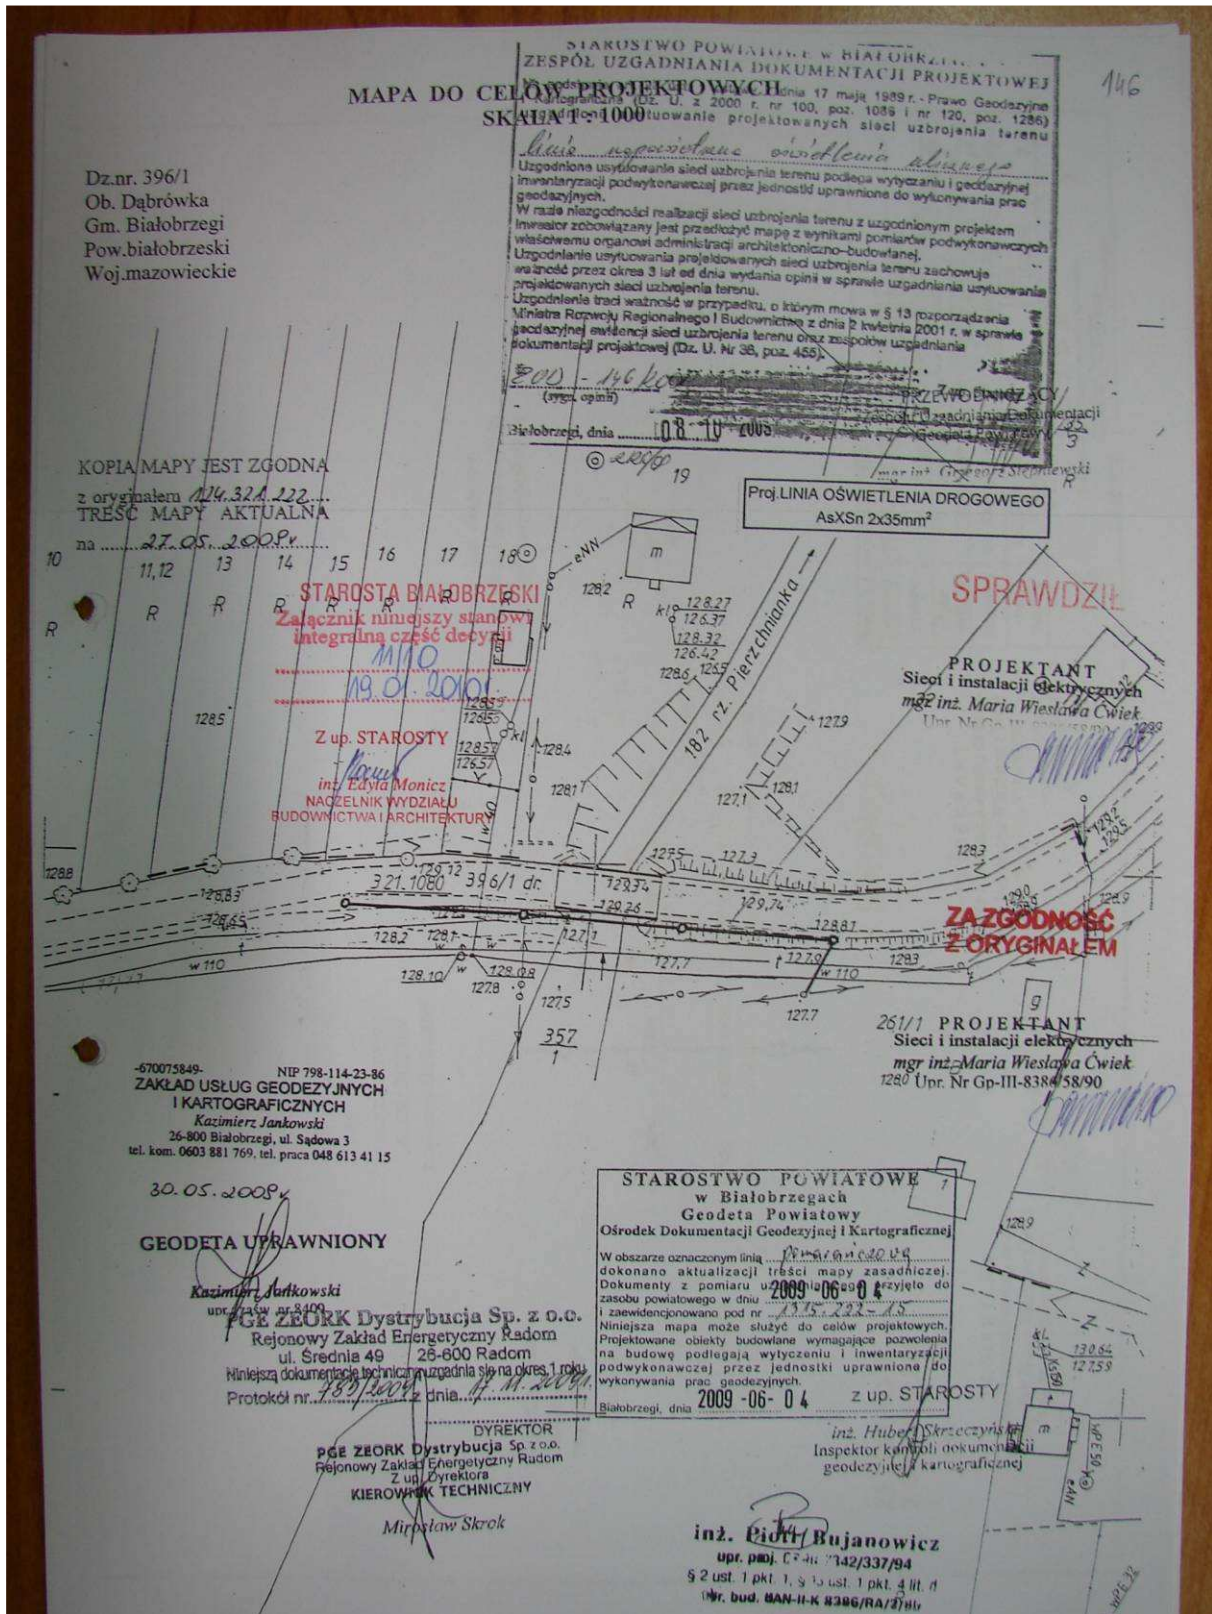 STAROSTWO POWIATOWE w BIAŁOBRZ
ZESPÓŁ UZGADNIANIA DOKUMENTACJI PROJEKTOWEJ
MAPA DO CELÓW PROJEKTOWYCH
SKALA 1 : 1000
146
dnia 17 maja 1989 r. - Prawo Geodezyjne
i Kartograficzne (Dz. U. z 2000 r. nr 100, poz. 1086 i nr 120, poz. 1286)
usytuowanie projektowanych sieci uzbrojenia terenu
linia napowietrzna oświetlenia ulicznego
Uzgodnione usytuowanie sieci uzbrojenia terenu podlega wytyczaniu i geodezyjnej
inwentaryzacji podwykonawczej przez jednostki uprawnione do wykonywania prac
geodezyjnych.
W razie niezgodności realizacji sieci uzbrojenia terenu z uzgodnionym projektem
Inwestor zobowiązany jest przedłożyć mapę z wynikami pomiarów podwykonawczych
właściwemu organowi administracji architektoniczno-budowlanej.
Uzgodnienie usytuowania projektowanych sieci uzbrojenia terenu zachowuje
ważność przez okres 3 lat od dnia wydania opinii w sprawie uzgadniania usytuowania
projektowanych sieci uzbrojenia terenu.
Uzgodnienie traci ważność w przypadku, o którym mowa w § 13 rozporządzenia
Ministra Rozwoju Regionalnego i Budownictwa z dnia 2 kwietnia 2001 r. w sprawie
geodezyjnej ewidencji sieci uzbrojenia terenu oraz zespołów uzgadniania
dokumentacji projektowej (Dz. U. Nr 38, poz. 455).
(sygn. opinii)
PRZEWODNICZĄCY
Zespołu Uzgadniania Dokumentacji
Geodeta Powiatowy
Białobrzegi, dnia
mgr inż. Grzegorz Stępniewski
Dz.nr. 396/1
Ob. Dąbrówka
Gm. Białobrzegi
Pow.białobrzeski
Woj.mazowieckie
KOPIA MAPY JEST ZGODNA
z oryginałem 124.321.222
TREŚĆ MAPY AKTUALNA
na 27.05.2009r
19
R
Proj.LINIA OŚWIETLENIA DROGOWEGO
AsXSn 2x35mm²
10 11,12 13 14 15 16 17 18
R R R R R R R R
eNN
m
128,2
kl 128.27
126.37
128.32
126.42
128.6 126.5
182 rz. Pierzchnianka
STAROSTA BIAŁOBRZESKI
Załącznik niniejszy stanowi
integralną część decyzji
11/10
19.01.2010r.
Z up. STAROSTY
inż. Edyta Monicz
NACZELNIK WYDZIAŁU
BUDOWNICTWA I ARCHITEKTURY
SPRAWDZIŁ
PROJEKTANT
Sieci i instalacji elektrycznych
mgr inż. Maria Wiesława Ćwiek
128.5
128.57
126.57
kl
128.4
128.1
127.9
127.1
128.1
127.5
127.3
128.3
129.2
129.5
128.8
128.83
128.65
129.12
321.1080 396/1 dr.
129.34
129.26
129.74
128.81
129.0
128.9
ZA ZGODNOŚĆ
Z ORYGINAŁEM
128.2
128.1
127.1
127.7
127.9
128.3
w 110
w 110
128.10
128.08
127.8
127.5
127.7
357
1
g
261/1
PROJEKTANT
Sieci i instalacji elektrycznych
mgr inż. Maria Wiesława Ćwiek
128.0 Upr. Nr Gp-III-8386/58/90
-670075849- NIP 798-114-23-86
ZAKŁAD USŁUG GEODEZYJNYCH
I KARTOGRAFICZNYCH
Kazimierz Jankowski
26-800 Białobrzegi, ul. Sądowa 3
tel. kom. 0603 881 769, tel. praca 048 613 41 15
30.05.2009r
GEODETA UPRAWNIONY
Kazimierz Jankowski
PGE ZEORK Dystrybucja Sp. z o.o.
Rejonowy Zakład Energetyczny Radom
ul. Średnia 49 26-600 Radom
Niniejszą dokumentację techniczną uzgadnia się na okres 1 roku
Protokół nr 783/2009 z dnia 17.11.2009r.
DYREKTOR
PGE ZEORK Dystrybucja Sp. z o.o.
Rejonowy Zakład Energetyczny Radom
Z up. Dyrektora
KIEROWNIK TECHNICZNY
Mirosław Skrok
STAROSTWO POWIATOWE
w Białobrzegach
Geodeta Powiatowy
Ośrodek Dokumentacji Geodezyjnej i Kartograficznej
W obszarze oznaczonym linią pomarańczową
dokonano aktualizacji treści mapy zasadniczej.
Dokumenty z pomiaru uzupełniającego przyjęto do
zasobu powiatowego w dniu 2009 -06- 0 4
i zaewidencjonowano pod nr 1315-222-15
Niniejsza mapa może służyć do celów projektowych.
Projektowane obiekty budowlane wymagające pozwolenia
na budowę podlegają wytyczeniu i inwentaryzacji
podwykonawczej przez jednostki uprawnione do
wykonywania prac geodezyjnych.
Białobrzegi, dnia 2009 -06- 0 4
z up. STAROSTY
inż. Hubert Skrzeczyński
Inspektor kontroli dokumentacji
geodezyjnej i kartograficznej
128.9
130.64
127.59
m
eAN
wPE 32
inż. Piotr Bujanowicz
§ 2 ust. 1 pkt. 1,